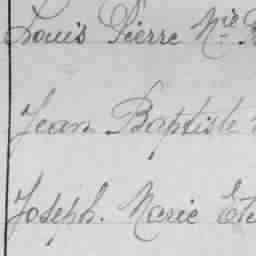 Louis Pierre Mie
Jean Baptiste
Joseph. Marie